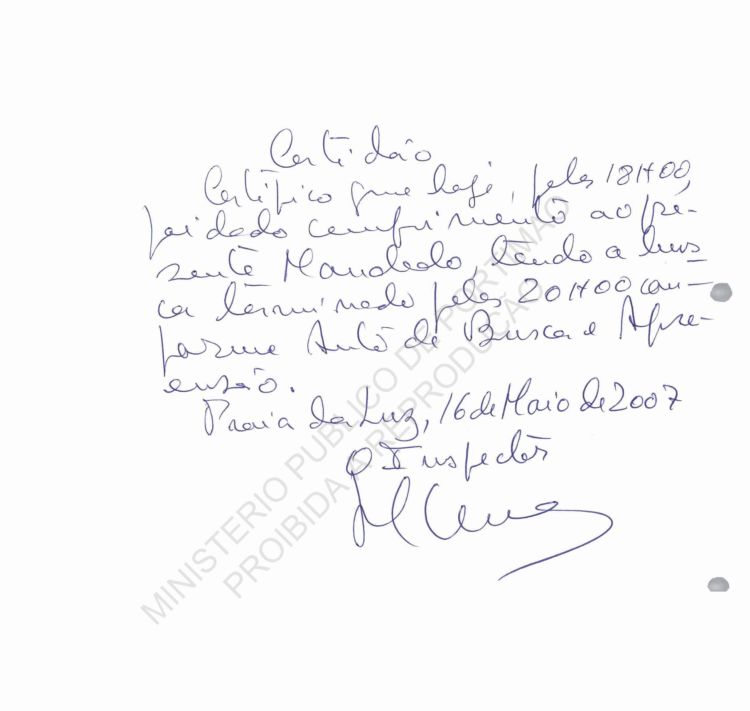 Certidão
Certifico que hoje, pelas 18H00,
foi dado cumprimento ao pre-
sente Mandado, tendo a bus-
ca terminado pelas 20H00 con-
forme Auto de Busca e Apre-
ensão.
Praia da Luz, 16 de Maio de 2007
O Inspector
MINISTERIO PUBLICO DE PORTIMAO
PROIBIDA A REPRODUCAO